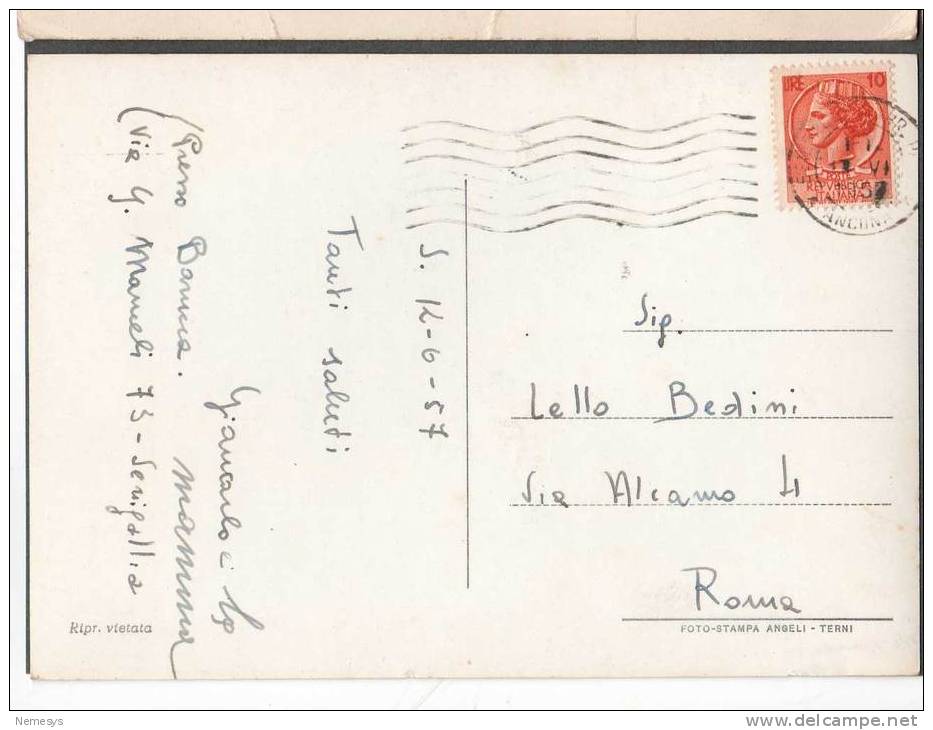 LIRE 10
POSTE
REPUBBLICA
ITALIANA
ANCONA
S. 12-6-57
Tanti saluti
Giancarlo e
mamma
(Presso Banca.
Via G. Mameli 73 - Senigallia
Sig.
Lello Bedini
Via Alcamo 4
Roma
Ripr. vietata
FOTO-STAMPA ANGELI - TERNI
Nemesys
www.delcampe.net